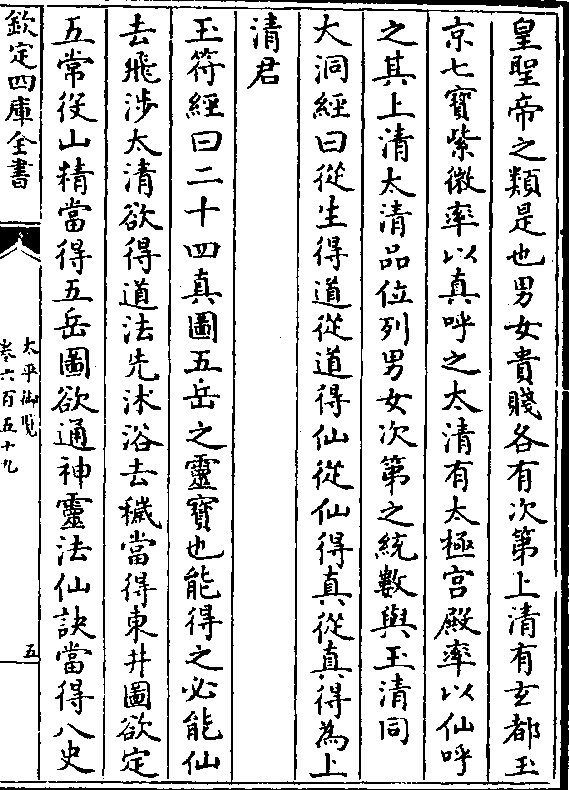 皇聖帝之類是也男女貴賤各有次第上清有玄都玉
京七寶紫微率以真呼之太清有太極宫殿率以仙呼
之其上清太清品位列男女次第之統數與玉清同
大洞經曰從生得道從道得仙從仙得真從真得為上
清君
玉符經曰二十四真圖五岳之靈寶也能得之必能仙
去飛涉太清欲得道法先沐浴去穢當得東井圖欲定
五常役山精當得五岳圖欲通神靈法仙訣當得八史
欽定四庫全書
太平御覽
卷六百五十九
五